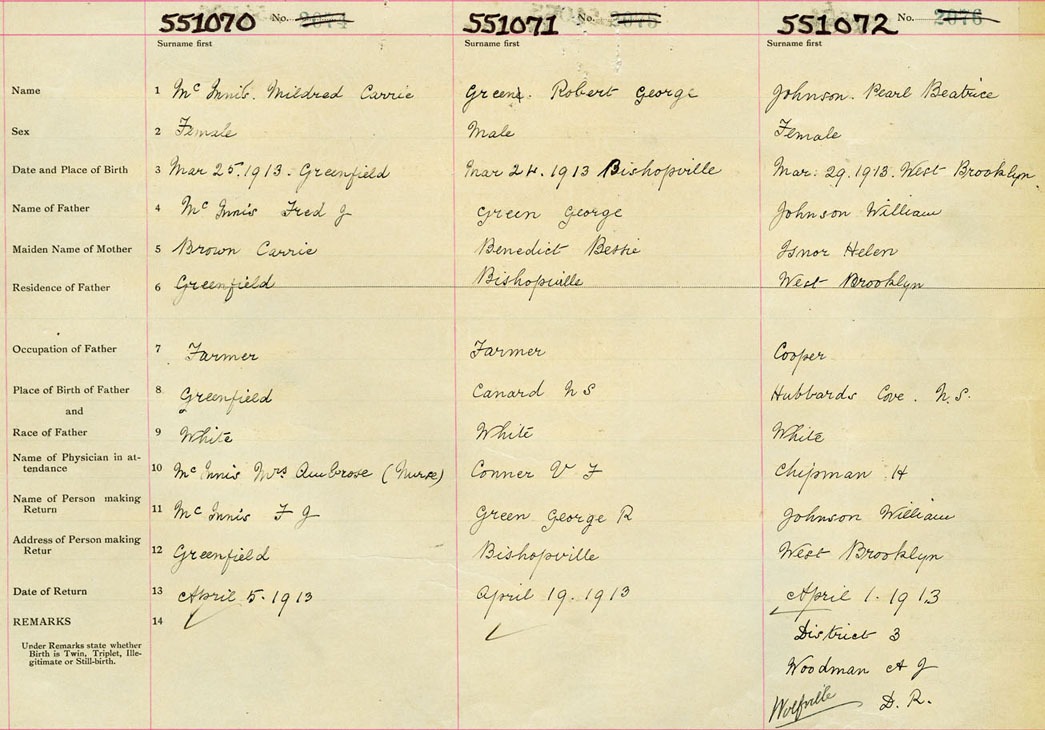 551070 No. 2074 551071 No. 2075 551072 No. 2076
Surname first Surname first Surname first
Name 1 Mc Innis. Mildred Carrie Green. Robert George Johnson. Pearl Beatrice
Sex 2 Female Male Female
Date and Place of Birth 3 Mar 25.1913. Greenfield Mar 24.1913 Bishopville Mar: 29.1913. West Brooklyn.
Name of Father 4 Mc Innis Fred J Green George Johnson William
Maiden Name of Mother 5 Brown Carrie Benedict Bessie Isnor Helen
Residence of Father 6 Greenfield Bishopville West Brooklyn
Occupation of Father 7 Farmer Farmer Cooper
Place of Birth of Father 8 Greenfield Canard N S Hubbards Cove. N.S.
and
Race of Father 9 White White White
Name of Physician in at-
tendance 10 Mc Innis Mrs Ambrose (Nurse) Conner V F Chipman H
Name of Person making
Return 11 Mc Innis F J Green George R Johnson William
Address of Person making
Retur 12 Greenfield Bishopville West Brooklyn
Date of Return 13 April 5.1913 April 19.1913 April 1.1913
REMARKS 14 District 3
Under Remarks state whether
Birth is Twin, Triplet, Ille-
gitimate or Still-birth.
Woodman A J
Wolfville D. R.